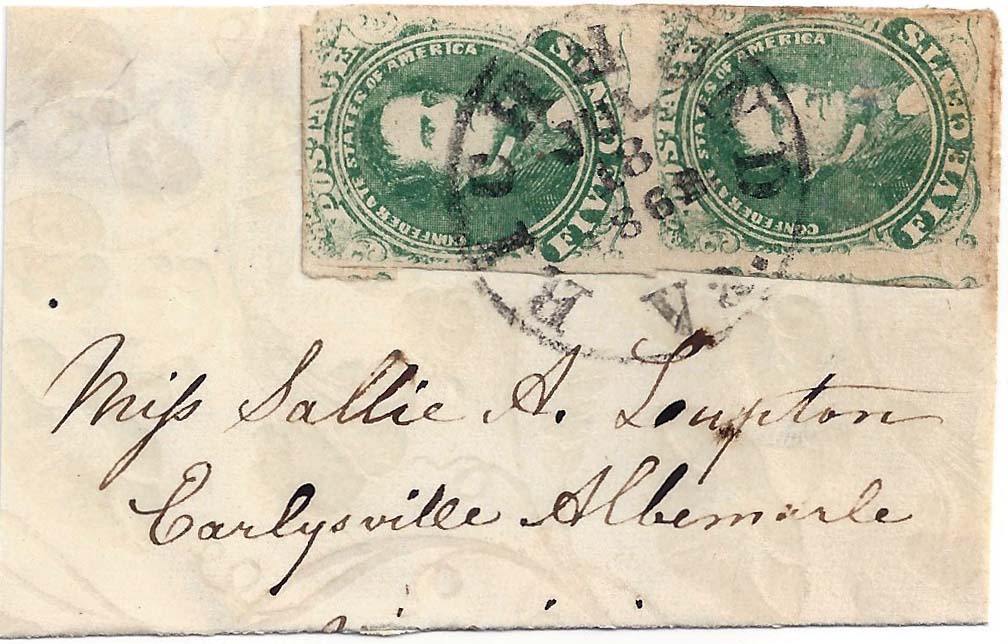 POSTAGE
CONFEDERATE STATES OF AMERICA
FIVE CENTS
POSTAGE
CONFEDERATE STATES OF AMERICA
FIVE CENTS
18
Miss Sallie A. Loupton
Earlysville Albemarle